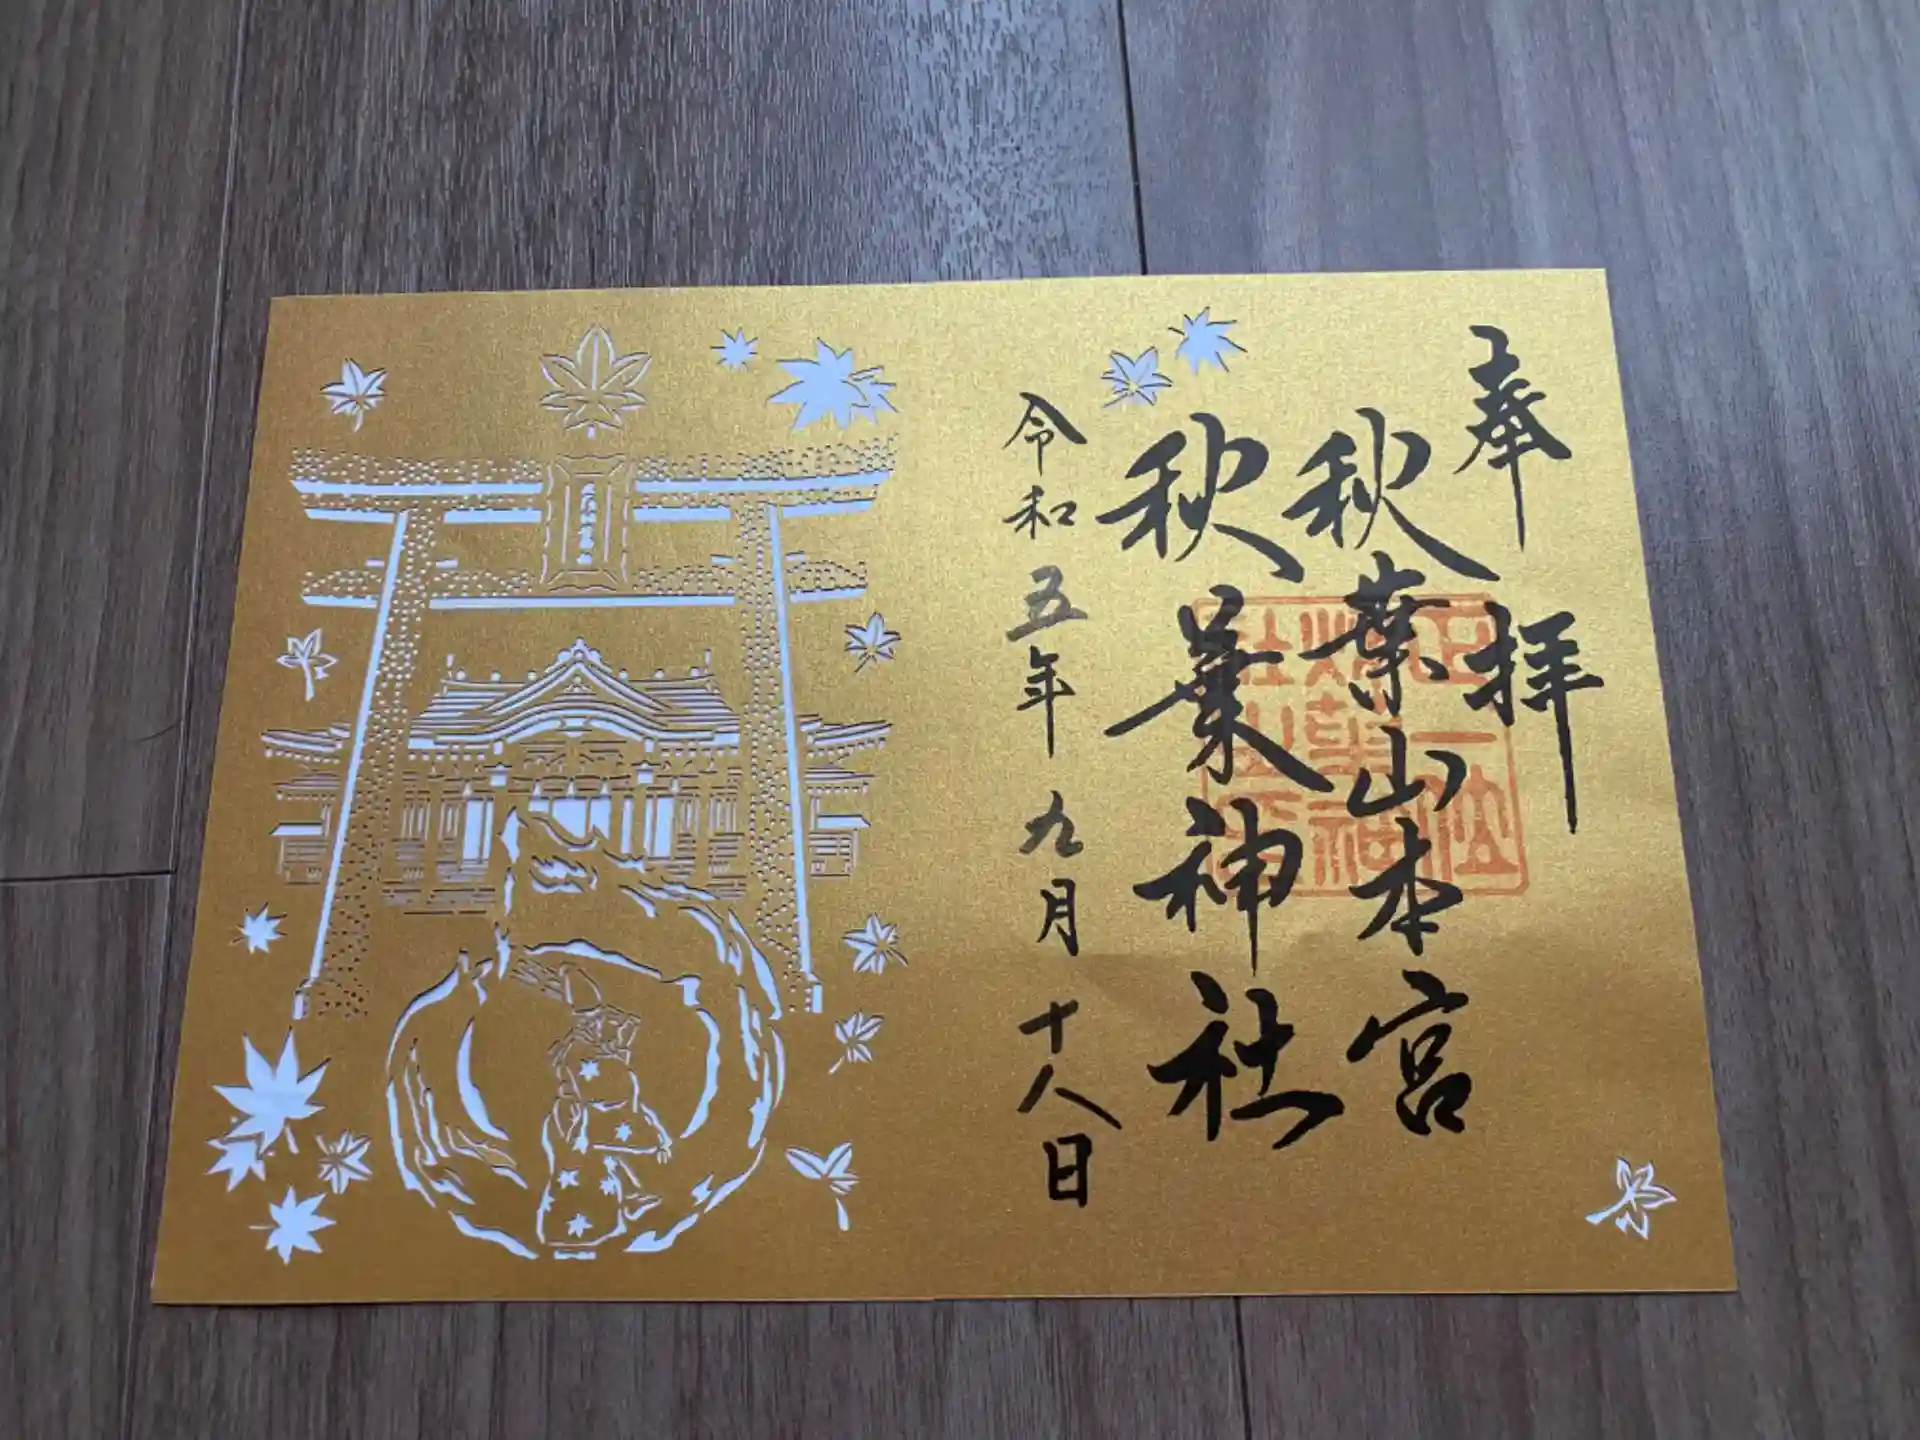 奉拝
秋葉山本宮
秋葉神社
令和五年九月十八日